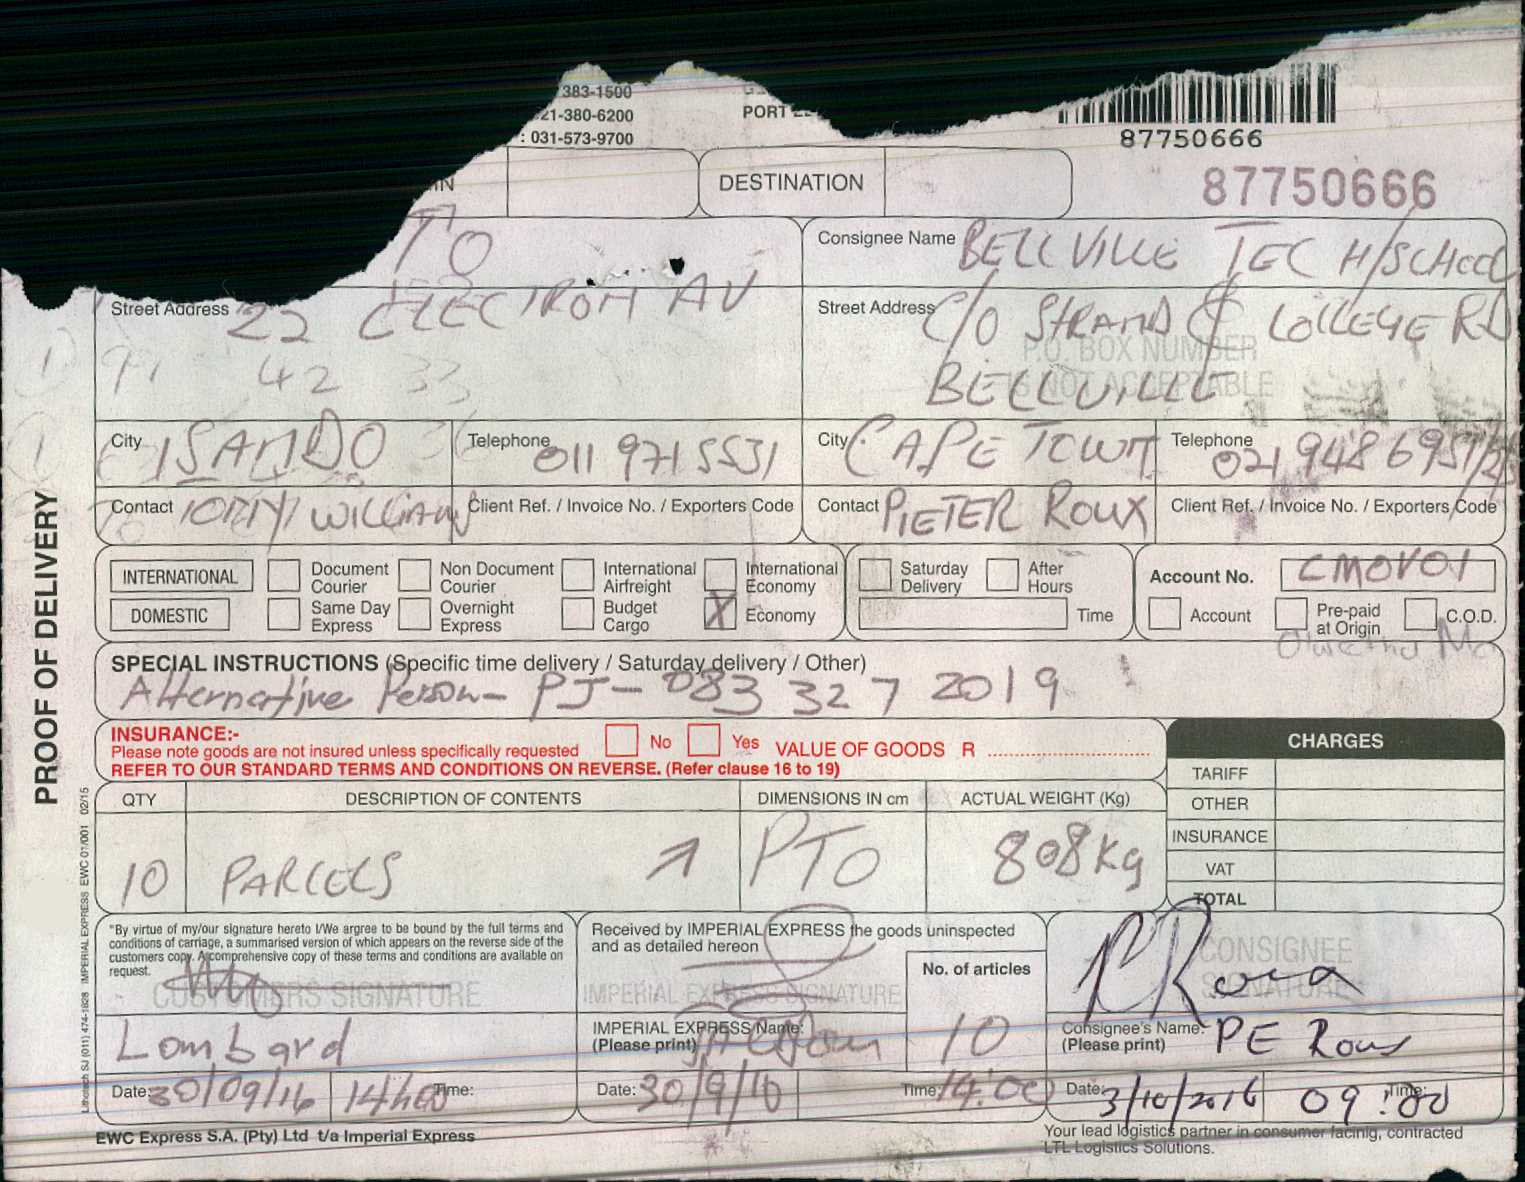 383-1500
21-380-6200
: 031-573-9700
PORT
87750666
DESTINATION
87750666
TO
Consignee Name BELLVILLE TEC H/SCHOOL
Street Address 22 ELECTRON AV
Street Address C/O STRAND & COLLEGE RD
P.O. BOX NUMBER
IS NOT ACCEPTABLE
BELLVILLE
42 33
City ISANDO
Telephone 011 971 5531
City CAPE TOWN
Telephone 021 948 6951/2/3
Contact TONY WILLIAMS
Client Ref. / Invoice No. / Exporters Code
Contact PIETER ROUX
Client Ref. / Invoice No. / Exporters Code
INTERNATIONAL
Document Courier
Non Document Courier
International Airfreight
International Economy
DOMESTIC
Same Day Express
Overnight Express
Budget Cargo
X Economy
Saturday Delivery
After Hours
Time
Account No. CMOV01
Account
Pre-paid at Origin
C.O.D.
SPECIAL INSTRUCTIONS (Specific time delivery / Saturday delivery / Other)
Alternative Person - PJ - 083 327 2019
INSURANCE:-
Please note goods are not insured unless specifically requested
No
Yes
VALUE OF GOODS R
REFER TO OUR STANDARD TERMS AND CONDITIONS ON REVERSE. (Refer clause 16 to 19)
CHARGES
TARIFF
OTHER
INSURANCE
VAT
TOTAL
QTY
DESCRIPTION OF CONTENTS
DIMENSIONS IN cm
ACTUAL WEIGHT (Kg)
10
PARCELS
PTO
808kg
"By virtue of my/our signature hereto I/We argree to be bound by the full terms and
conditions of carriage, a summarised version of which appears on the reverse side of the
customers copy. A comprehensive copy of these terms and conditions are available on
request.
CUSTOMERS SIGNATURE
Lombard
Date: 30/09/16
Time: 14h00
Received by IMPERIAL EXPRESS the goods uninspected
and as detailed hereon
IMPERIAL EXPRESS SIGNATURE
No. of articles
10
IMPERIAL EXPRESS Name:
(Please print)
Date: 30/9/16
Time: 14:00
CONSIGNEE
SIGNATURE
PRoux
Consignee's Name:
(Please print)
PE Roux
Date: 3/10/2016
Time: 09:00
EWC Express S.A. (Pty) Ltd t/a Imperial Express
Your lead logistics partner in consumer facinig, contracted
LTL Logistics Solutions.
PROOF OF DELIVERY
Lithotech SJU (011) 474-1828 IMPERIAL EXPRESS EWC 01/001 02/15